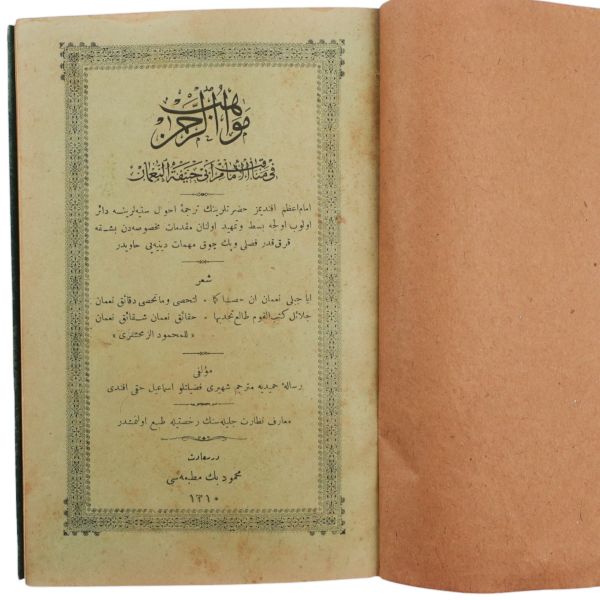 مواهب الرحمن
فی مناقب الامام ابی حنیفة النعمان
امام اعظم افندیمز حضرتلرینك ترجمهٔ احوال سنیه‌لرینه دائر
اولوب اولجه بسط و تمهید اولنان مقدمات مخصوصه‌دن بشقه
قرق قدر فصلی و پك چوق مهمات دینیه‌یی حاویدر
شعر
ایا جبلی نعمان ان حصاکما ٠ لتحصی وما تحصی دقائق نعمان
جلائل كتب الفوم طالع تجدبها ٠ حقائق نعمان شقائق نعمان
« للمحمود الزمخشری »
مؤلفی
رسالهٔ حمیدیه مترجم شهیری فضیلتلو اسماعیل حقی افندی
معارف نظارت جلیله‌سنك رخصتیله طبع اولنمشدر
درسعادت
محمود بك مطبعه‌سی
١٣١٠